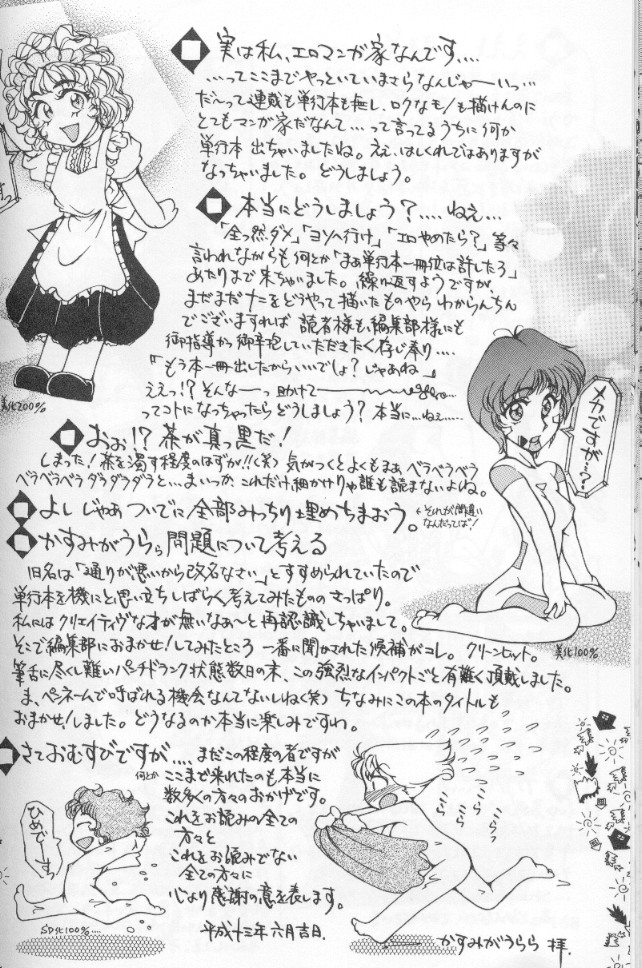 実は私、エロマンガ家なんです....
...ってここまでやっといていまさらなんじゃーいっ...
だ~って連載も単行本も無し、ロクなモノも描けんのに
とてもマンガ家だなんて...って言ってるうちに何か
単行本 出ちゃいましたね。ええ、はしくれではありますが
なっちゃいました。どうしましょう。
本当にどうしましょう?....ねえ...
「全っ然ダメ」「ヨソへ行け」「エロやめたら?」等々
言われながらも何とか「まあ単行本一冊位は許したろ」
あたりまで来ちゃいました。繰り返すようですが、
まだまだナニをどうやって描いたものやらわからんちん
でございますれば 読者様も編集部様にも
御指導かつ御辛抱していただきたく存じ奉り....
「もう本一冊出したからいいでしょ?じゃあね」
ええっ!?そんなーっ助けてー
ってコトになっちゃったらどうしましょう?本当に...ねえ....
美化200%
おぉ!?茶が真っ黒だ!
しまった!茶を濁す程度のはずが!!(笑) 気がつくとよくもまぁベラベラベラ
ベラベラベラダラダラダラと...まいっか、これだけ細かけりゃ誰も読まないよね。
メカですが...?
よし じゃあついでに全部みっちり埋めちまおう。
←それが間違い
なんだってば!
かすみがうらら問題について考える
旧名は「通りが悪いから改名なさい」とすすめられていたので
単行本を機にと思い立ちしばらく考えてみたものの さっぱり。
私にはクリエイティヴな才が無いなあ~と再認識しちゃいまして。
そこで編集部におまかせ!してみたところ 一番に聞かされた候補がコレ。クリーンヒット。
美化100%
筆舌に尽くし難いパンチドランク状態数日の末、この強烈なインパクトごと有難く頂戴しました。
ま、ペンネームで呼ばれる機会なんてないしね(笑) ちなみにこの本のタイトルも
おまかせ!しました。どうなるのか本当に楽しみですわ。
さておむすびですが....まだこの程度の者ですが
何とか ここまで来れたのも本当に
数多くの方々のおかげです。
これをお読みの全ての
方々と
これをお読みでない
全ての方々に
心より感謝の意を表します。
平成十三年六月吉日.
かすみがうらら 拝.
ひめです。
SD化100%....
うらら
うらら